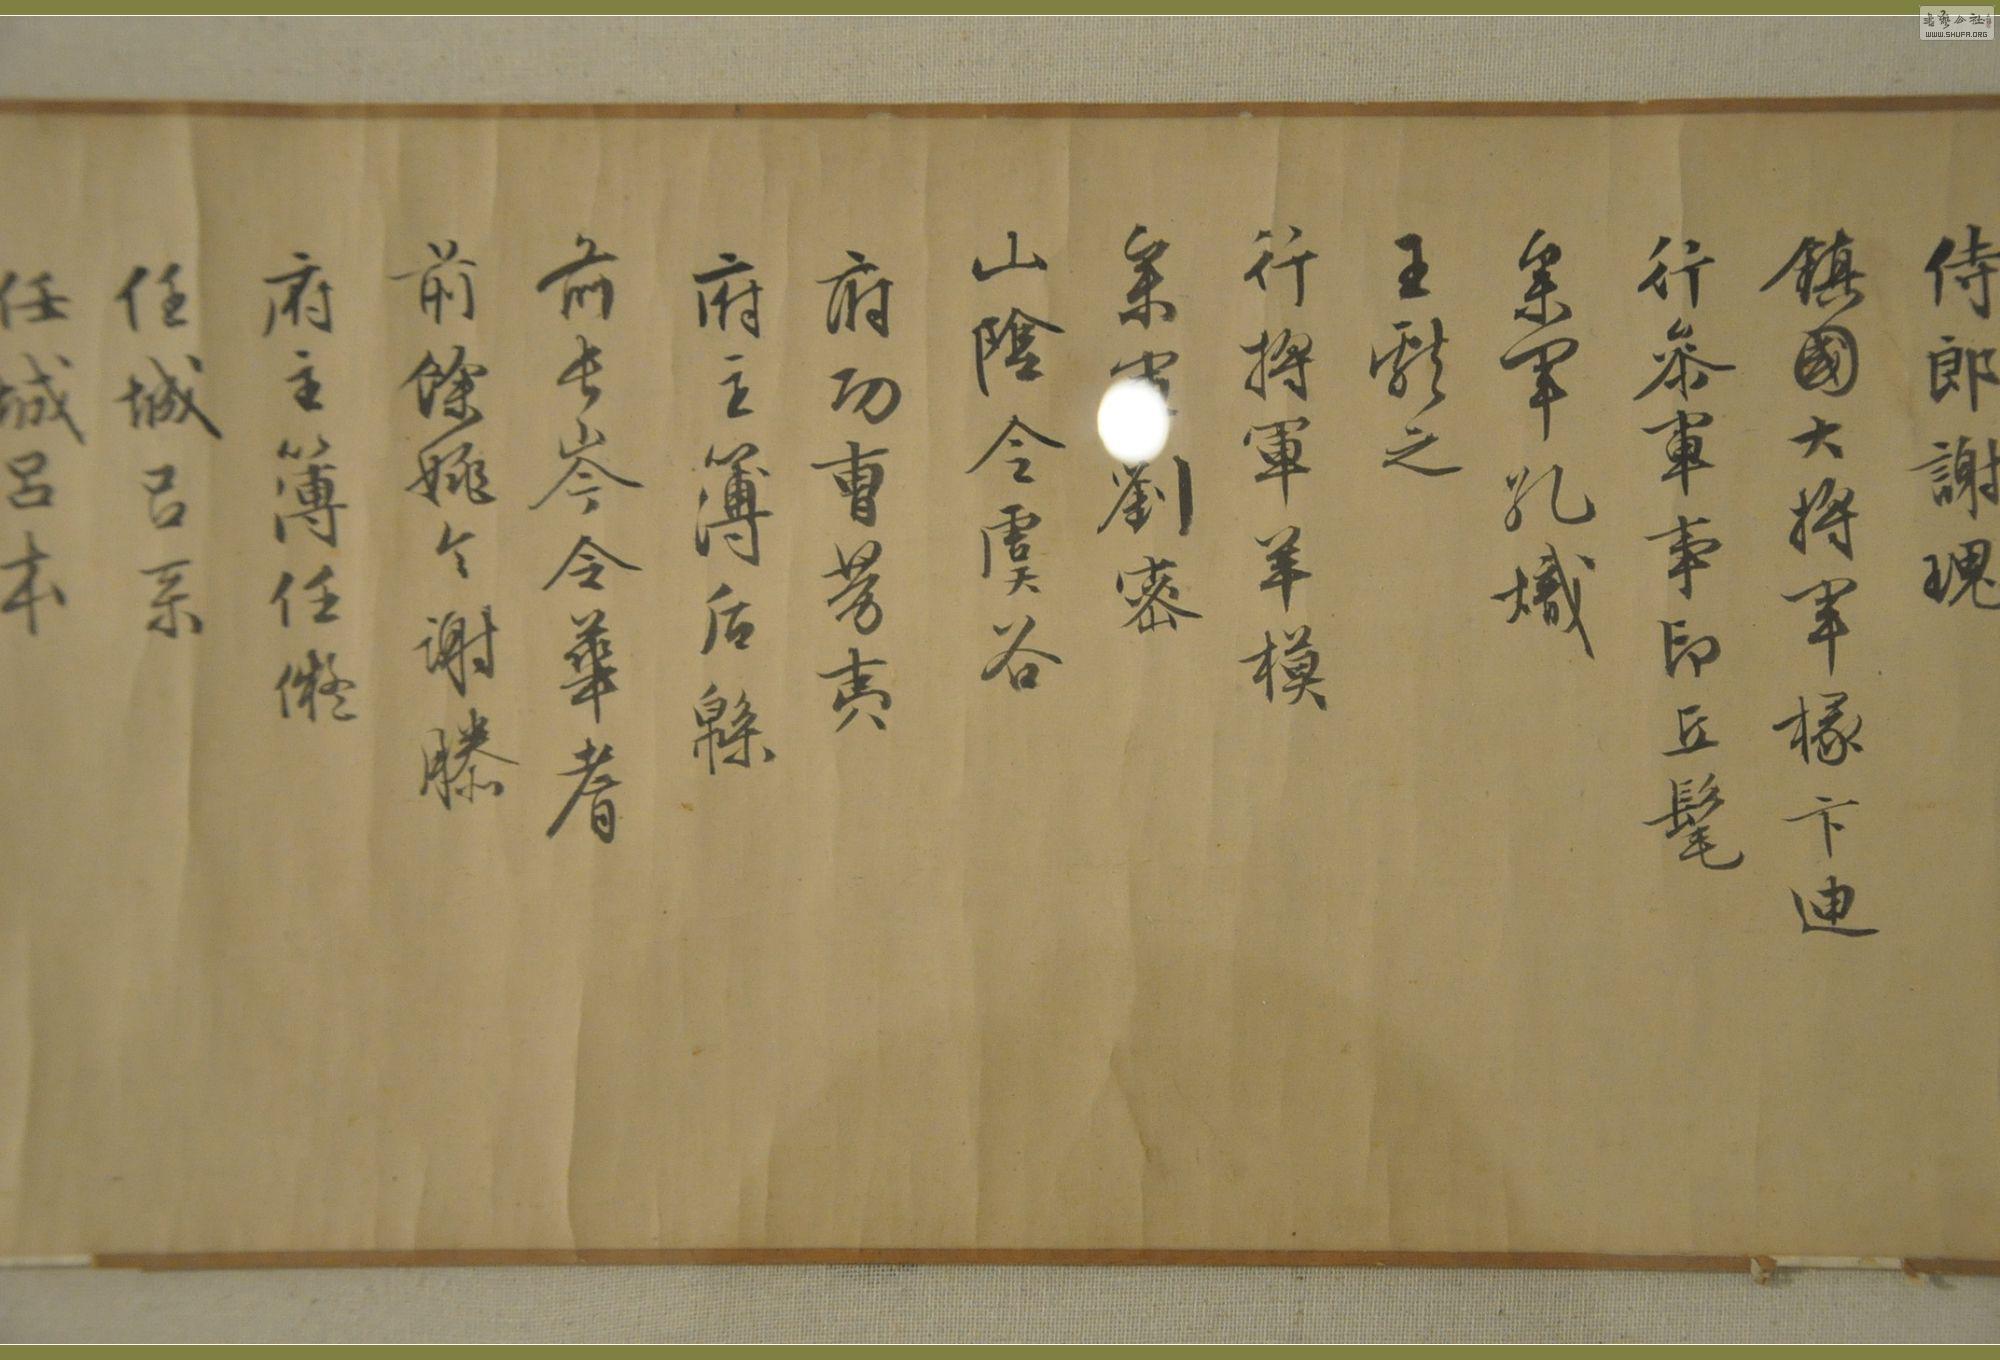 侍郎謝瑰
鎮國大將軍掾卞迪
行叅軍事邱丘髦
叅軍孔熾
王獻之
行將軍羊模
叅軍劉密
山陰令虞谷
府功曹勞夷
府主簿后綿
前長岑令華耆
前餘姚令謝滕
府主簿任儗
任城呂系
任城呂本
書藝公社
WWW.SHUFA.ORG